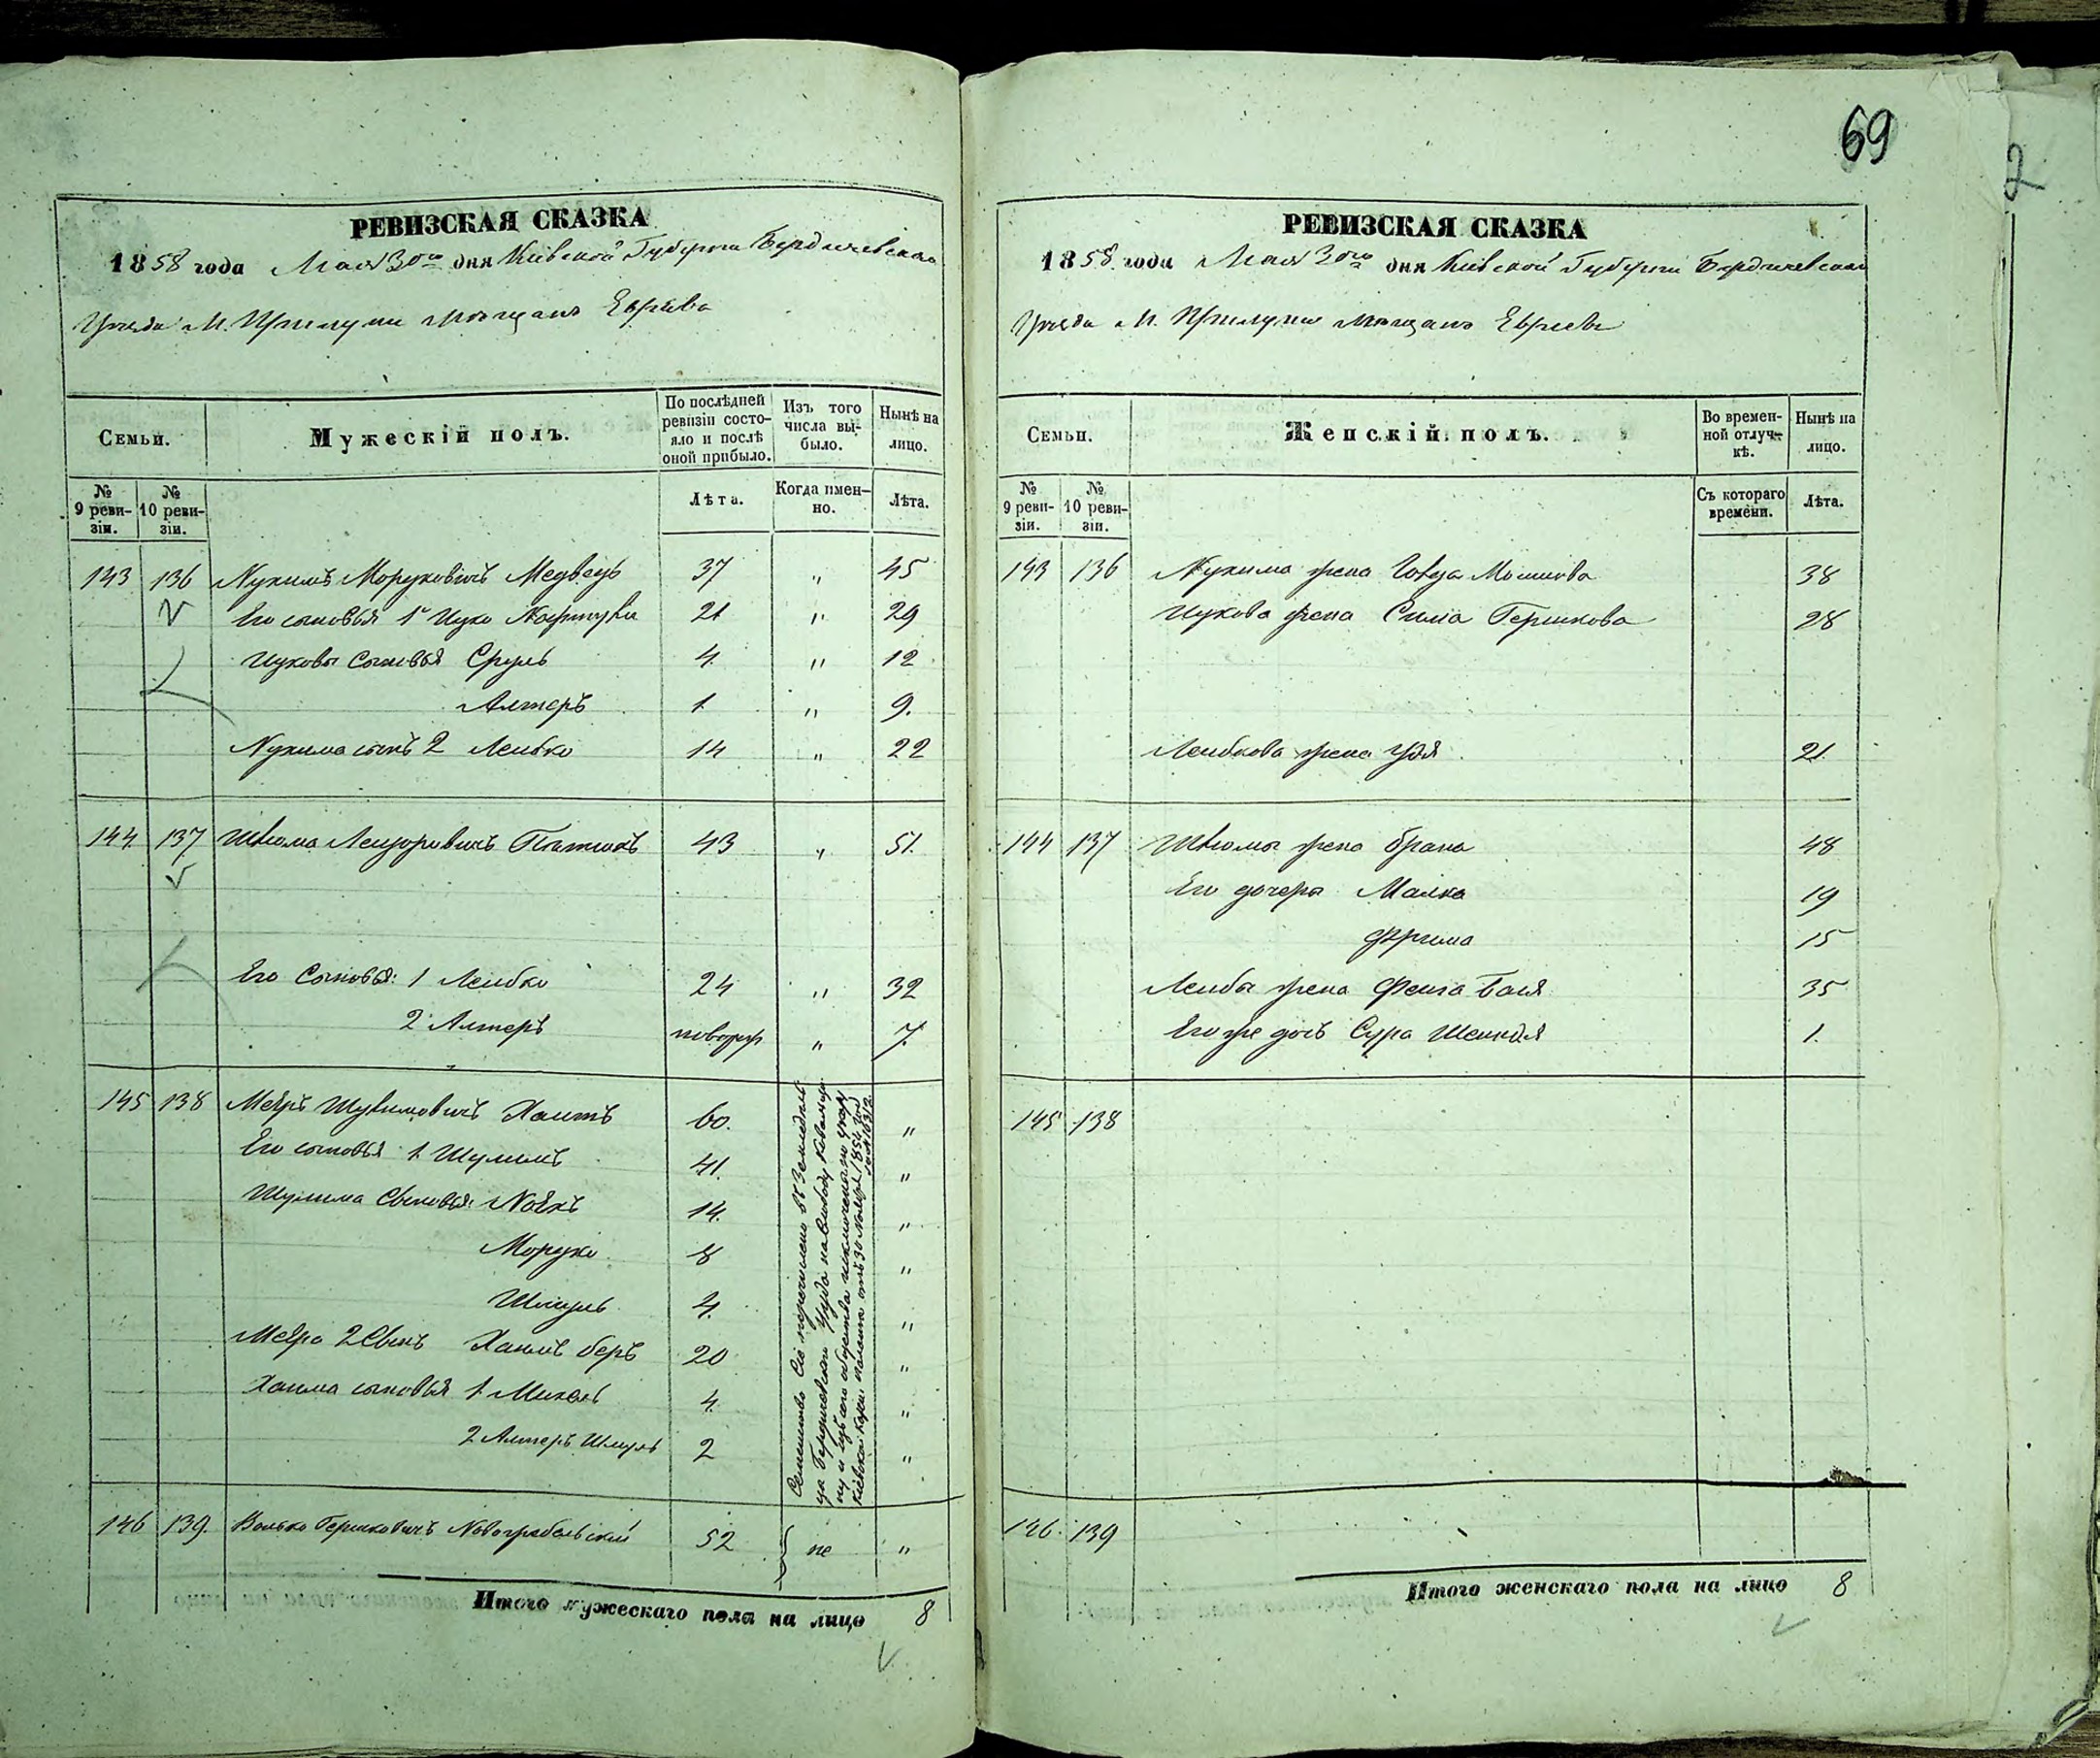 69
2
РЕВИЗСКАЯ СКАЗКА
1858 года Мая 30го дня Кіевской Губерніи Бердичевскаго
Уезда М. Прилуки мѣщанъ Евреевъ
Семьи.
Мужескій полъ.
По послѣдней ревизіи состояло и послѣ оной прибыло.
Изъ того числа выбыло.
Нынѣ на лицо.
№ 9 ревизіи.
№ 10 ревизіи.
Лѣта.
Когда именно.
Лѣта.
143 136 Нухимъ Моруховичъ Медведь 37 " 45
Его сыновья 1й Ицко 21 " 29
Ицковы Сыновья Сруль 4. " 12
Алтеръ 1 " 9.
Нухима сынъ 2 Лейбко 14 " 22
144 137 Шлиома 43 " 51.
Его Сыновья: 1 Лейбко 24 " 32
2 Алтеръ новорж " 7.
145 138 Меяръ Шулимовичъ 60. "
Его сыновья 1. Шулимъ 41. "
Шулима Сыновья: 14. "
Морухо 8 "
Шмуль 4. "
Меяра 2 Сынъ Хаимъ беръ 20 "
Хаима сыновья 1. Михель 4. "
2 Алтеръ Шмуль 2 "
Семейство Сіе перечислено въ
Бердичевскаго Уезда
и изъ сего общества исключена по указу
Кіевской Казен. Палаты отъ 30 Ноября 1854 года
за № 16312.
146 139. Волько Гершковичъ 52 не "
Итого мужескаго пола на лицо 8
РЕВИЗСКАЯ СКАЗКА
1858 года Мая 30го дня Кіевской Губерніи Бердичевскаго
Уезда М. Прилуки мѣщанъ Евреевъ
Семьи.
Женскій полъ.
Во временной отлучкѣ.
Нынѣ на лицо.
№ 9 ревизіи.
№ 10 ревизіи.
Съ котораго времени.
Лѣта.
143 136 Нухима жена Мошкова 38
Ицкова жена Сима Гершкова 28
Лейбкова жена Удя 21.
144 137 Шлиомы жена Брана 48
Его дочери Малка 19
Фрима 15
Лейбы жена Фейга Бася 35
Его же дочь Сура Шейндля 1.
145 138
146. 139
Итого женскаго пола на лицо 8